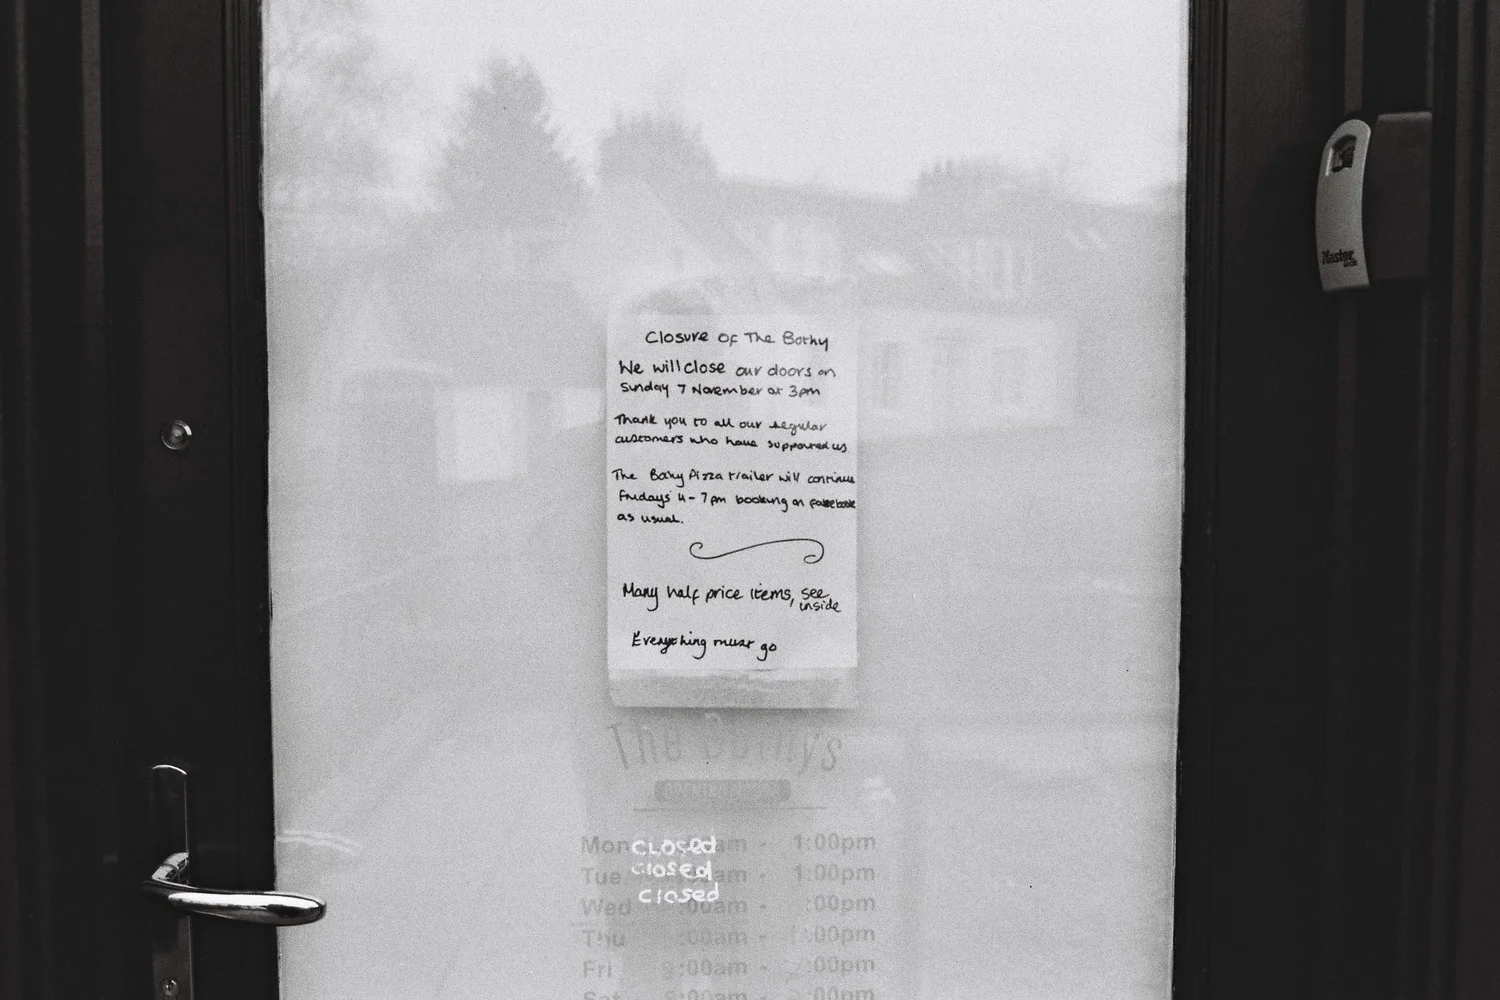 Closure of The Bothy
We will close our doors on
Sunday 7 November at 3pm
Thank you to all our regular
customers who have supported us.
The Bothy Pizza trailer will continue
Fridays 4-7pm booking on facebook
as usual.
Many half price items, see
inside
Everything must go
The Bothy's
Mon closed am - 1:00pm
Tue closed am - 1:00pm
Wed closed :00am - :00pm
Thu :00am - :00pm
Fri :00am - :00pm
Sat :00am - :00pm
Master